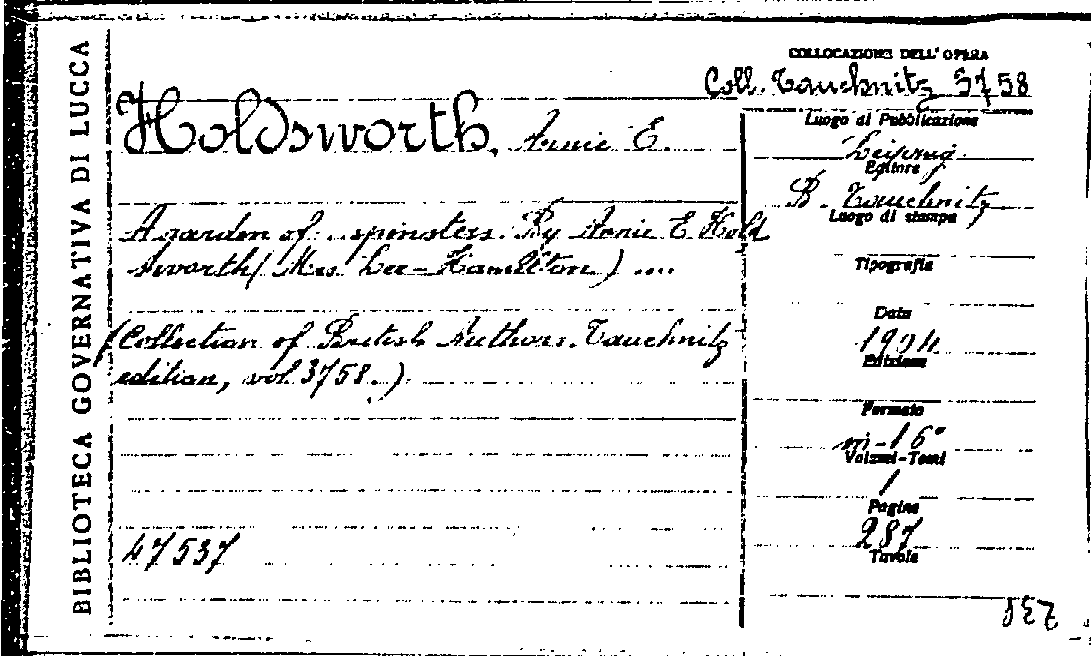 BIBLIOTECA GOVERNATIVA DI LUCCA
COLLOCAZIONE DELL' OPERA
Coll. Tauchnitz 3758
Holdsworth, Annie E.
A garden of spinsters. By Annie E Hold
sworth (Mrs Lee-Hamilton) ....
(Collection of British Authors. Tauchnitz
edition, vol 3758.)
47537
Luogo di Pubblicazione
Leipzig
Editore
B. Tauchnitz
Luogo di stampa
Tipografia
Data
1904
Edizione
Formato
in-16°
Volumi-Tomi
1
Pagine
287
Tavole